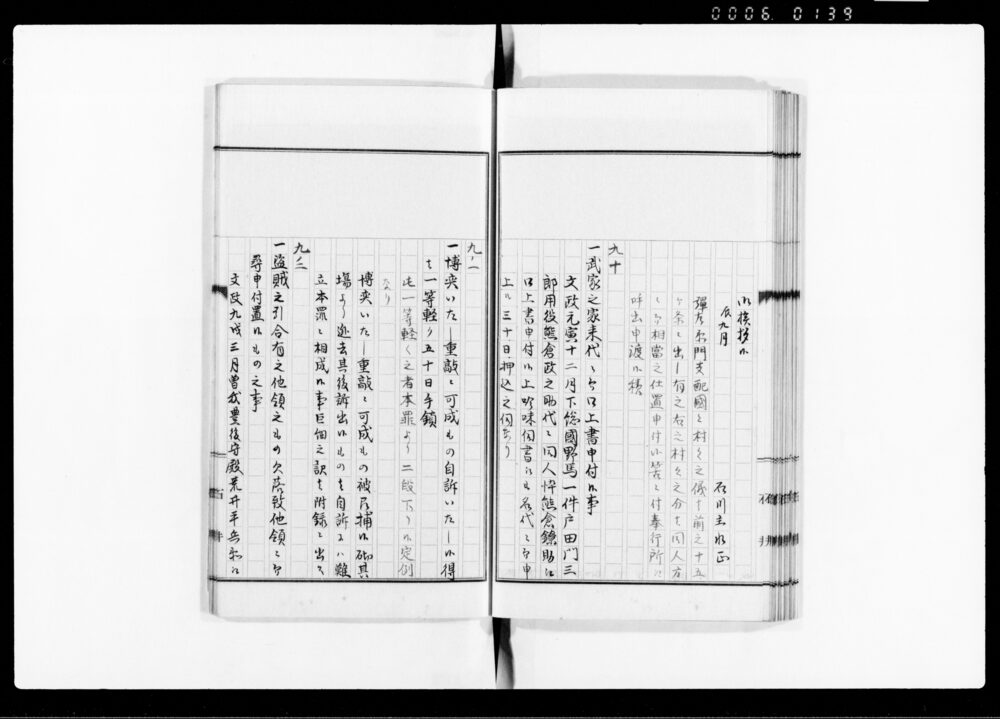 0006.0139
御挨拶候
辰九月
石川主水正
弾左衛門支配國々村々之儀ハ前之十五
ヶ条ニ出し有之右之村々之分も同人方
ニ而相當之仕置申付候筈ニ付奉行所江
呼出申渡候積
九十
一武家之家来代ニ而口上書申付候事
文政元寅十二月下総國野馬一件戸田門三
郎用役熊倉政之助代ニ同人忰熊倉鐐助江
口上書申付候上吟味伺書江も名代ニ而申
上ル三十日押込之伺なり
九ノ一
一博奕いたし重敲ニ可成もの自訴いたし候得
は一等軽り五十日手鎖
此一等軽く之者本罪より二段下り候定例
なり
博奕いたし重敲ニ可成もの被召捕候砌其
場より逃去其後訴出候ものは自訴ニハ難
立本罪ニ相成候事巨細之訳は附録ニ出ス
九ノ二
一盗賊之引合有之他領之もの欠落致他領ニ而
尋申付置候もの之事
文政九戌三月曽我豊後守殿荒井平兵衛江
石井